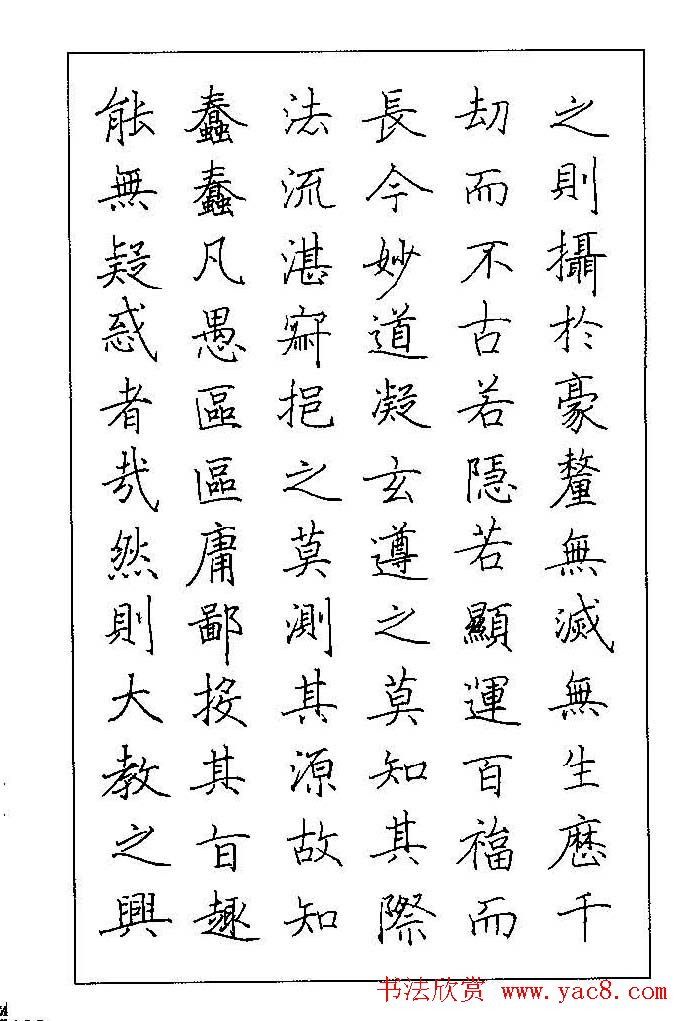 之則攝於豪釐無滅無生歷千
劫而不古若隱若顯運百福而
長今妙道凝玄遵之莫知其際
法流湛寂挹之莫測其源故知
蠢蠢凡愚區區庸鄙投其旨趣
能無疑惑者哉然則大教之興
书法欣赏 www.yac8.com